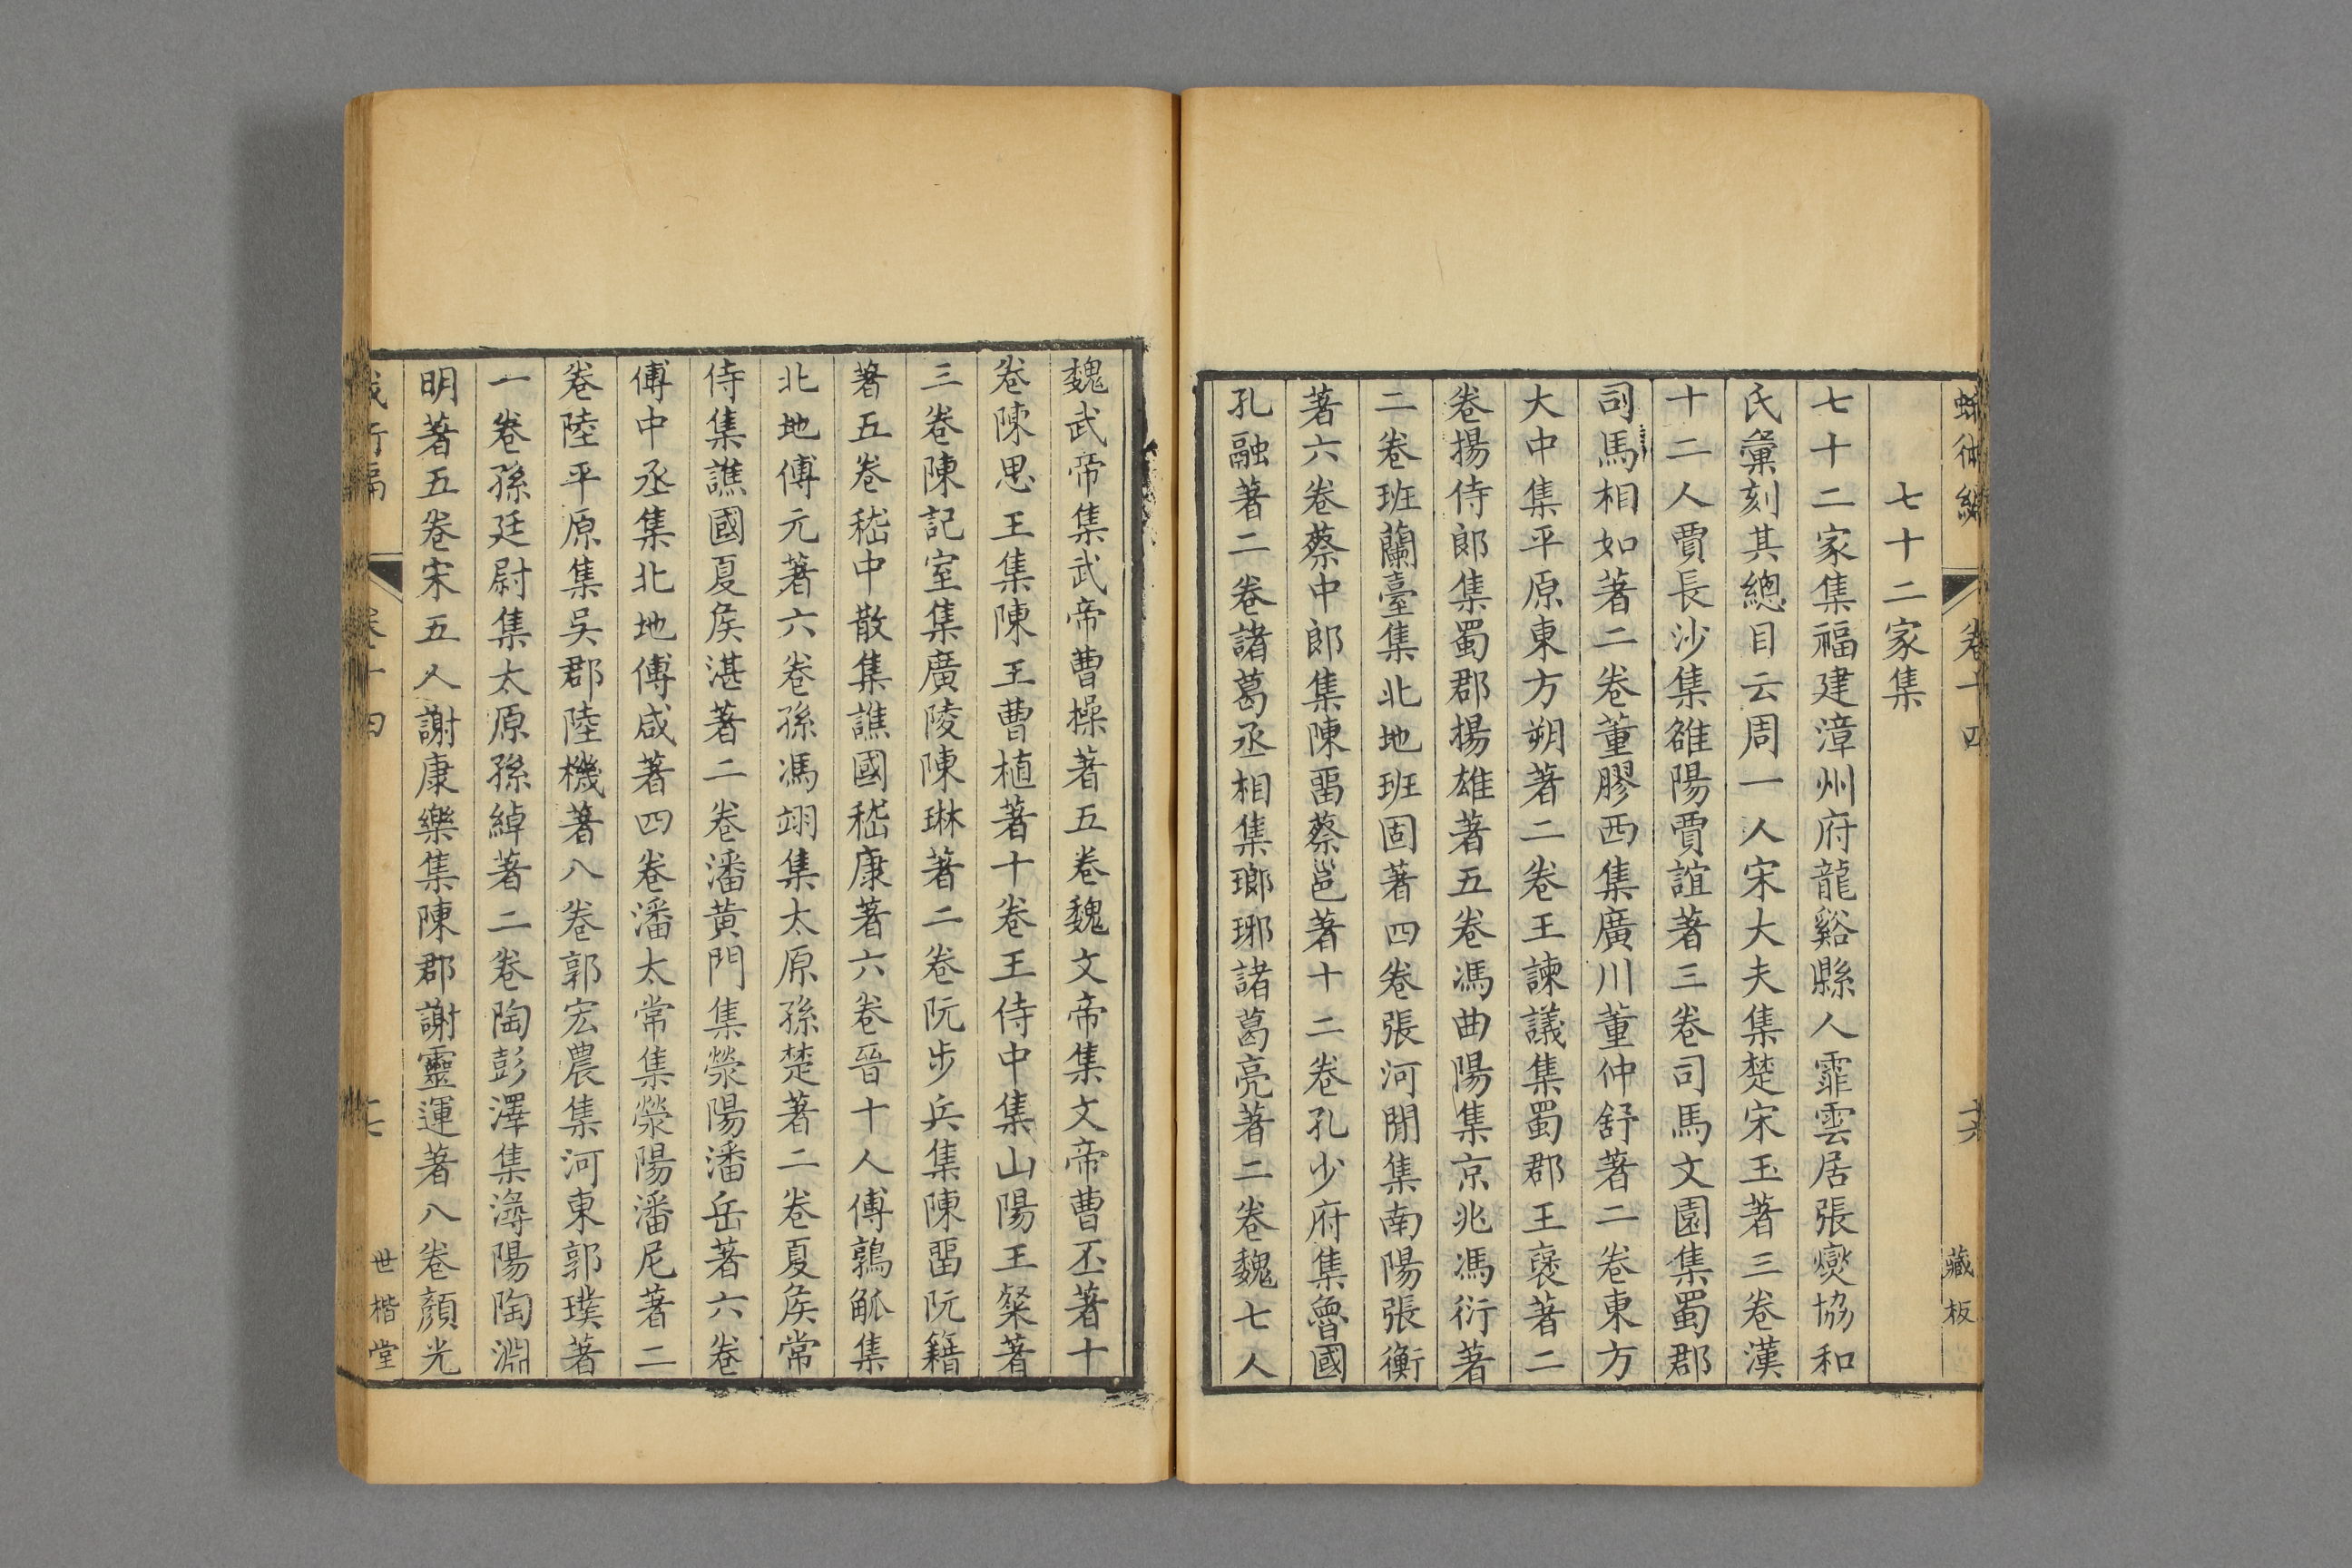 卷十四
藏板
七十二家集
七十二家集福建漳州府龍谿縣人霏雲居張燮協和
氏彙刻其總目云周一人宋大夫集楚宋玉著三卷漢
十二人賈長沙集雒陽賈誼著三卷司馬文園集蜀郡
司馬相如著二卷董膠西集廣川董仲舒著二卷東方
大中集平原東方朔著二卷王諫議集蜀郡王褒著二
卷揚侍郎集蜀郡揚雄著五卷馮曲陽集京兆馮衍著
二卷班蘭臺集北地班固著四卷張河閒集南陽張衡
著六卷蔡中郎集陳畱蔡邕著十二卷孔少府集魯國
孔融著二卷諸葛丞相集瑯琊諸葛亮著二卷魏七人
魏武帝集武帝曹操著五卷魏文帝集文帝曹丕著十
卷陳思王集陳王曹植著十卷王侍中集山陽王粲著
三卷陳記室集廣陵陳琳著二卷阮步兵集陳畱阮籍
著五卷嵇中散集譙國嵇康著六卷晉十人傅鶉觚集
北地傅元著六卷孫馮翊集太原孫楚著二卷夏侯常
侍集譙國夏侯湛著二卷潘黄門集滎陽潘岳著六卷
傅中丞集北地傅咸著四卷潘太常集滎陽潘尼著二
卷陸平原集吳郡陸機著八卷郭宏農集河東郭璞著
一卷孫廷尉集太原孫綽著二卷陶彭澤集潯陽陶淵
明著五卷宋五人謝康樂集陳郡謝靈運著八卷顏光
世楷堂